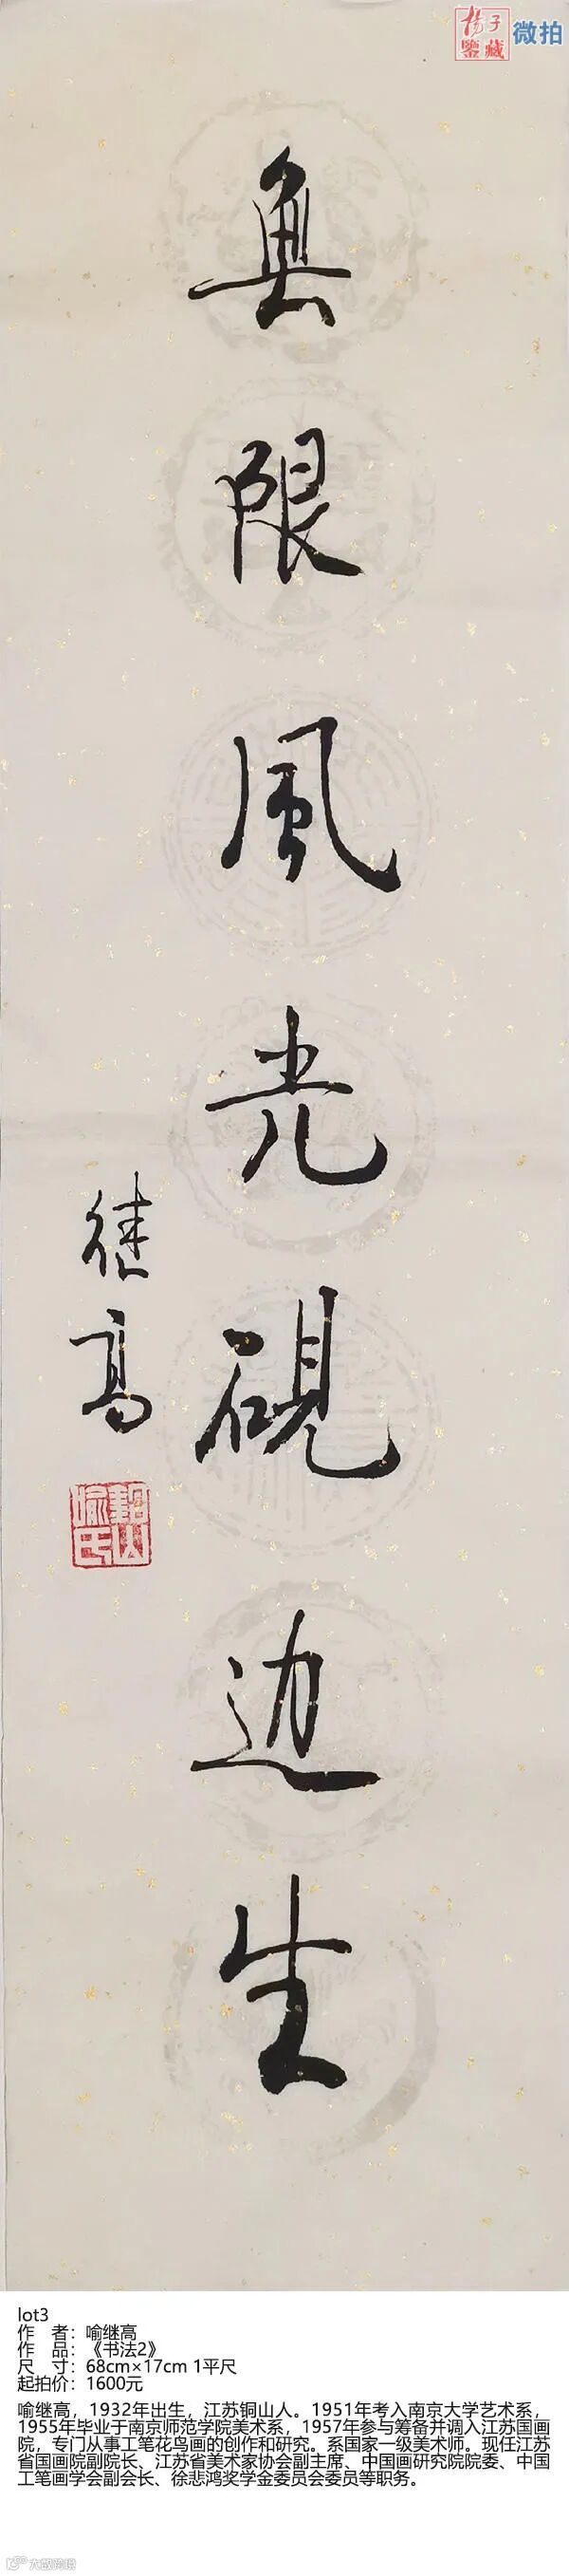 杨子
鉴藏
微拍
無限風光硯边生
继高
喻氏
lot3
作　者：喻继高
作　品：《书法2》
尺　寸：68cm×17cm 1平尺
起拍价：1600元
喻继高，1932年出生，江苏铜山人。1951年考入南京大学艺术系，
1955年毕业于南京师范学院美术系，1957年参与筹备并调入江苏国画
院，专门从事工笔花鸟画的创作和研究。系国家一级美术师。现任江苏
省国画院副院长、江苏省美术家协会副主席、中国画研究院院委、中国
工笔画学会副会长、徐悲鸿奖学金委员会委员等职务。